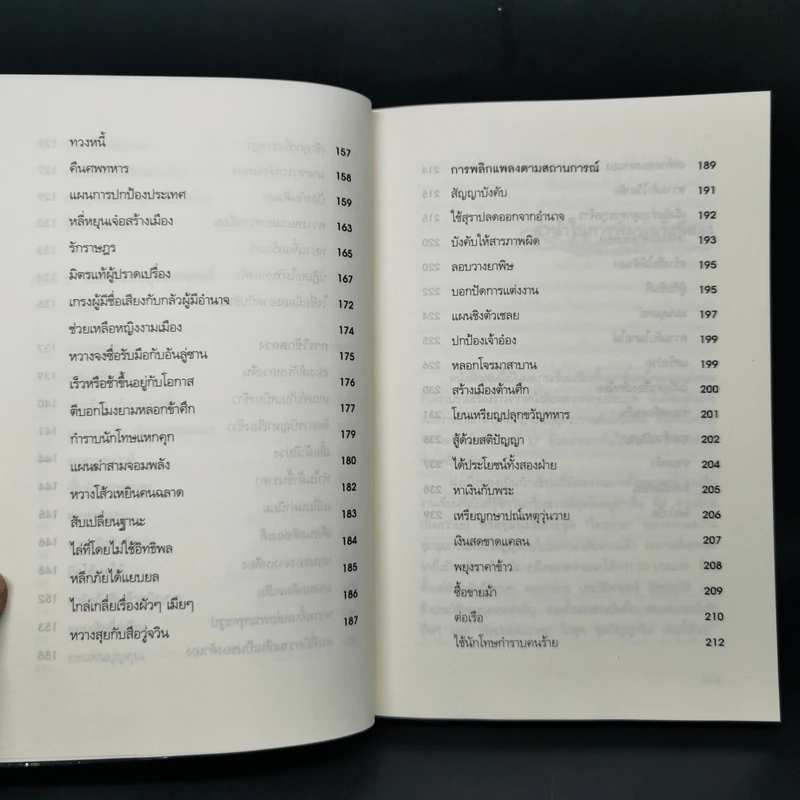 ทวงหนี้ 157
คืนศพทหาร 158
แผนการปกป้องประเทศ 159
หลี่หยุนเจ๋อสร้างเมือง 163
รักราษฎร 165
มิตรแท้ผู้ปราดเปรื่อง 167
เกรงผู้มีชื่อเสียงกับกลัวผู้มีอำนาจ 172
ช่วยเหลือหญิงงามเมือง 174
หวางจงซื่อรับมือกับอันลู่ซาน 175
เร็วหรือช้าขึ้นอยู่กับโอกาส 176
ตีบอกโมงยามหลอกข้าศึก 177
กำราบนักโทษแหกคุก 179
แผนฆ่าสามจอมพลัง 180
หวางโส้วเหยินคนฉลาด 182
สับเปลี่ยนฐานะ 183
ไล่ที่โดยไม่ใช้อิทธิพล 184
หลีกภัยได้แยบยล 185
ไกล่เกลี่ยเรื่องผัวๆ เมียๆ 186
หวางสุยกับสือวู่จวิน 187
การพลิกแพลงตามสถานการณ์ 189
สัญญาบังคับ 191
ใช้สุราปลดออกจากอำนาจ 192
บังคับให้สารภาพผิด 193
ลอบวางยาพิษ 195
บอกปัดการแต่งงาน 195
แผนชิงตัวเชลย 197
ปกป้องเจ้าอ๋อง 199
หลอกโจรมาสาบาน 199
สร้างเมืองต้านศึก 200
โยนเหรียญปลุกขวัญทหาร 201
สู้ด้วยสติปัญญา 202
ได้ประโยชน์ทั้งสองฝ่าย 204
หาเงินกับพระ 205
เหรียญกษาปณ์เหตุวุ่นวาย 206
เงินสดขาดแคลน 207
พยุงราคาข้าว 208
ซื้อขายม้า 209
ต่อเรือ 210
ใช้นักโทษกำราบคนร้าย 212